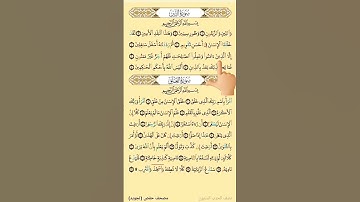 سورة التين
بسم الله الرحمن الرحيم
والتين والزيتون ١ وطور سينين ٢ وهذا البلد الأمين ٣ لقد
خلقنا الإنسان في أحسن تقويم ٤ ثم رددناه أسفل سافلين ٥
إلا الذين آمنوا وعملوا الصالحات فلهم أجر غير ممنون ٦
فما يكذبك بعد بالدين ٧ أليس الله بأحكم الحاكمين ٨
سورة العلق
بسم الله الرحمن الرحيم
اقرأ باسم ربك الذي خلق ١ خلق الإنسان من علق ٢ اقرأ وربك
الأكرم ٣ الذي علم بالقلم ٤ علم الإنسان ما لم يعلم ٥ كلا إن
الإنسان ليطغى ٦ أن رآه استغنى ٧ إن إلى ربك الرجعى ٨ أرأيت
الذي ينهى ٩ عبدا إذا صلى ١٠ أرأيت إن كان على الهدى ١١ أو أمر
بالتقوى ١٢ أرأيت إن كذب وتولى ١٣ ألم يعلم بأن الله يرى ١٤
كلا لئن لم ينته لنسفعا بالناصية ١٥ ناصية كاذبة خاطئة ١٦ فليدع
ناديه ١٧ سندع الزبانية ١٨ كلا لا تطعه واسجد واقترب ١٩